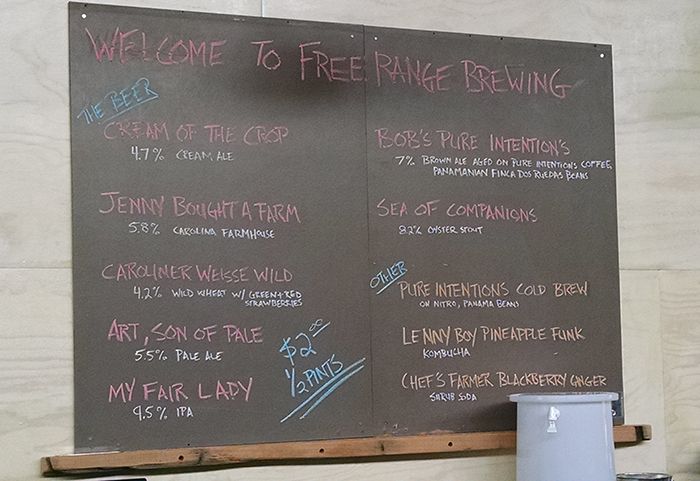 WELCOME TO FREE RANGE BREWING
THE BEER
CREAM OF THE CROP
4.7% CREAM ALE
JENNY BOUGHT A FARM
5.8% CAROLINA FARMHOUSE
CAROLINER WEISSE WILD
4.2% WILD WHEAT W/ GREEN+RED
STRAWBERRIES
ART, SON OF PALE
5.5% PALE ALE
MY FAIR LADY
4.5% IPA
$2.00
1/2 PINTS
BOB'S PURE INTENTION'S
7% BROWN ALE AGED ON PURE INTENTIONS COFFEE,
PANAMANIAN FINCA DOS RUEDAS BEANS
SEA OF COMPANIONS
8.2% OYSTER STOUT
OTHER
PURE INTENTIONS COLD BREW
ON NITRO, PANAMA BEANS
LENNY BOY PINEAPPLE FUNK
KOMBUCHA
CHEF'S FARMER BLACKBERRY GINGER
SHRUB SODA